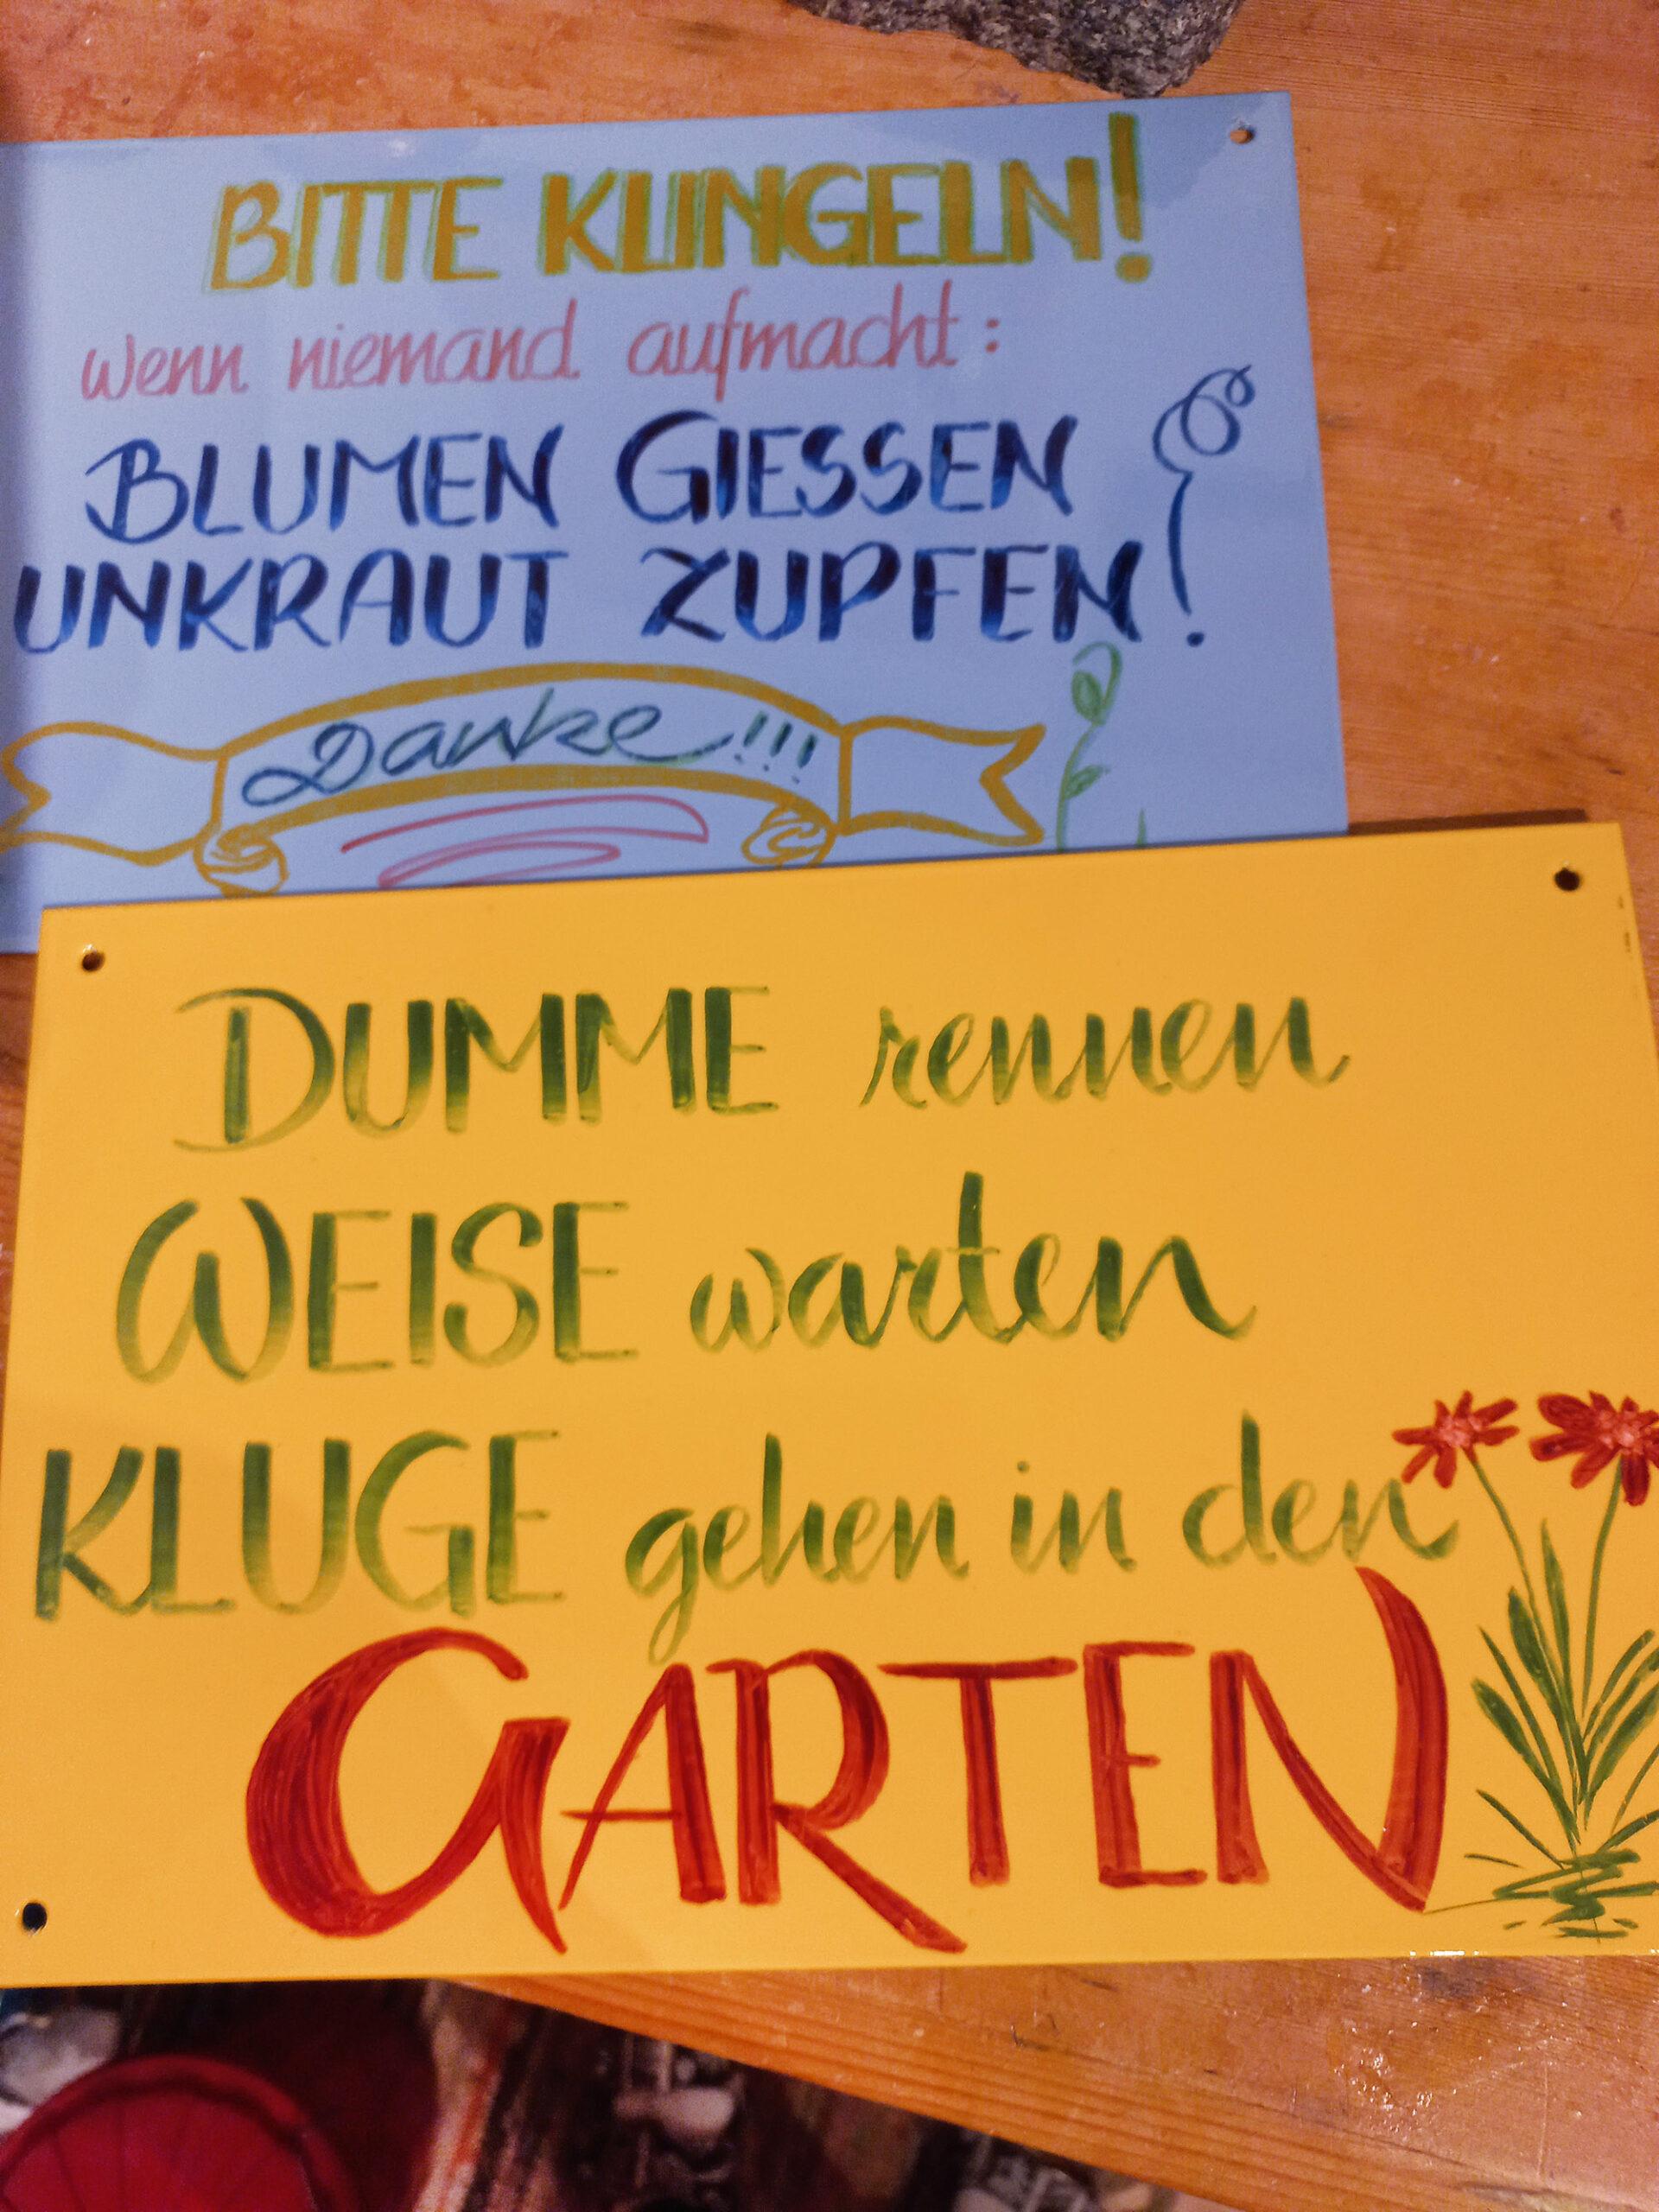 BITTE KLINGELN!
wenn niemand aufmacht:
BLUMEN GIESSEN
UNKRAUT ZUPFEN!
Danke!!!
DUMME rennen
WEISE warten
KLUGE gehen in den
GARTEN